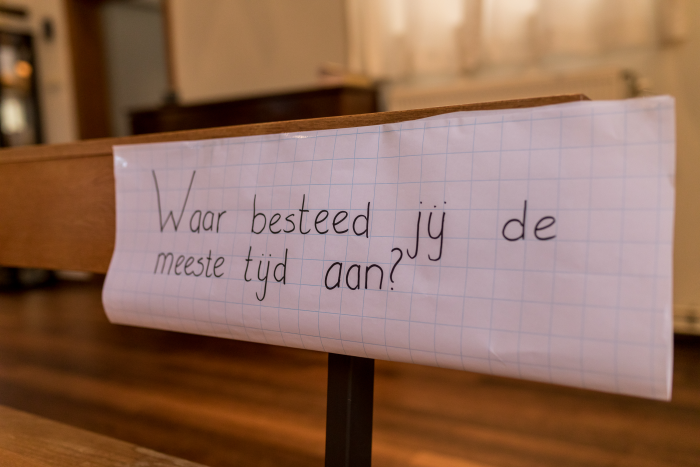 Waar besteed jij de
meeste tijd aan?